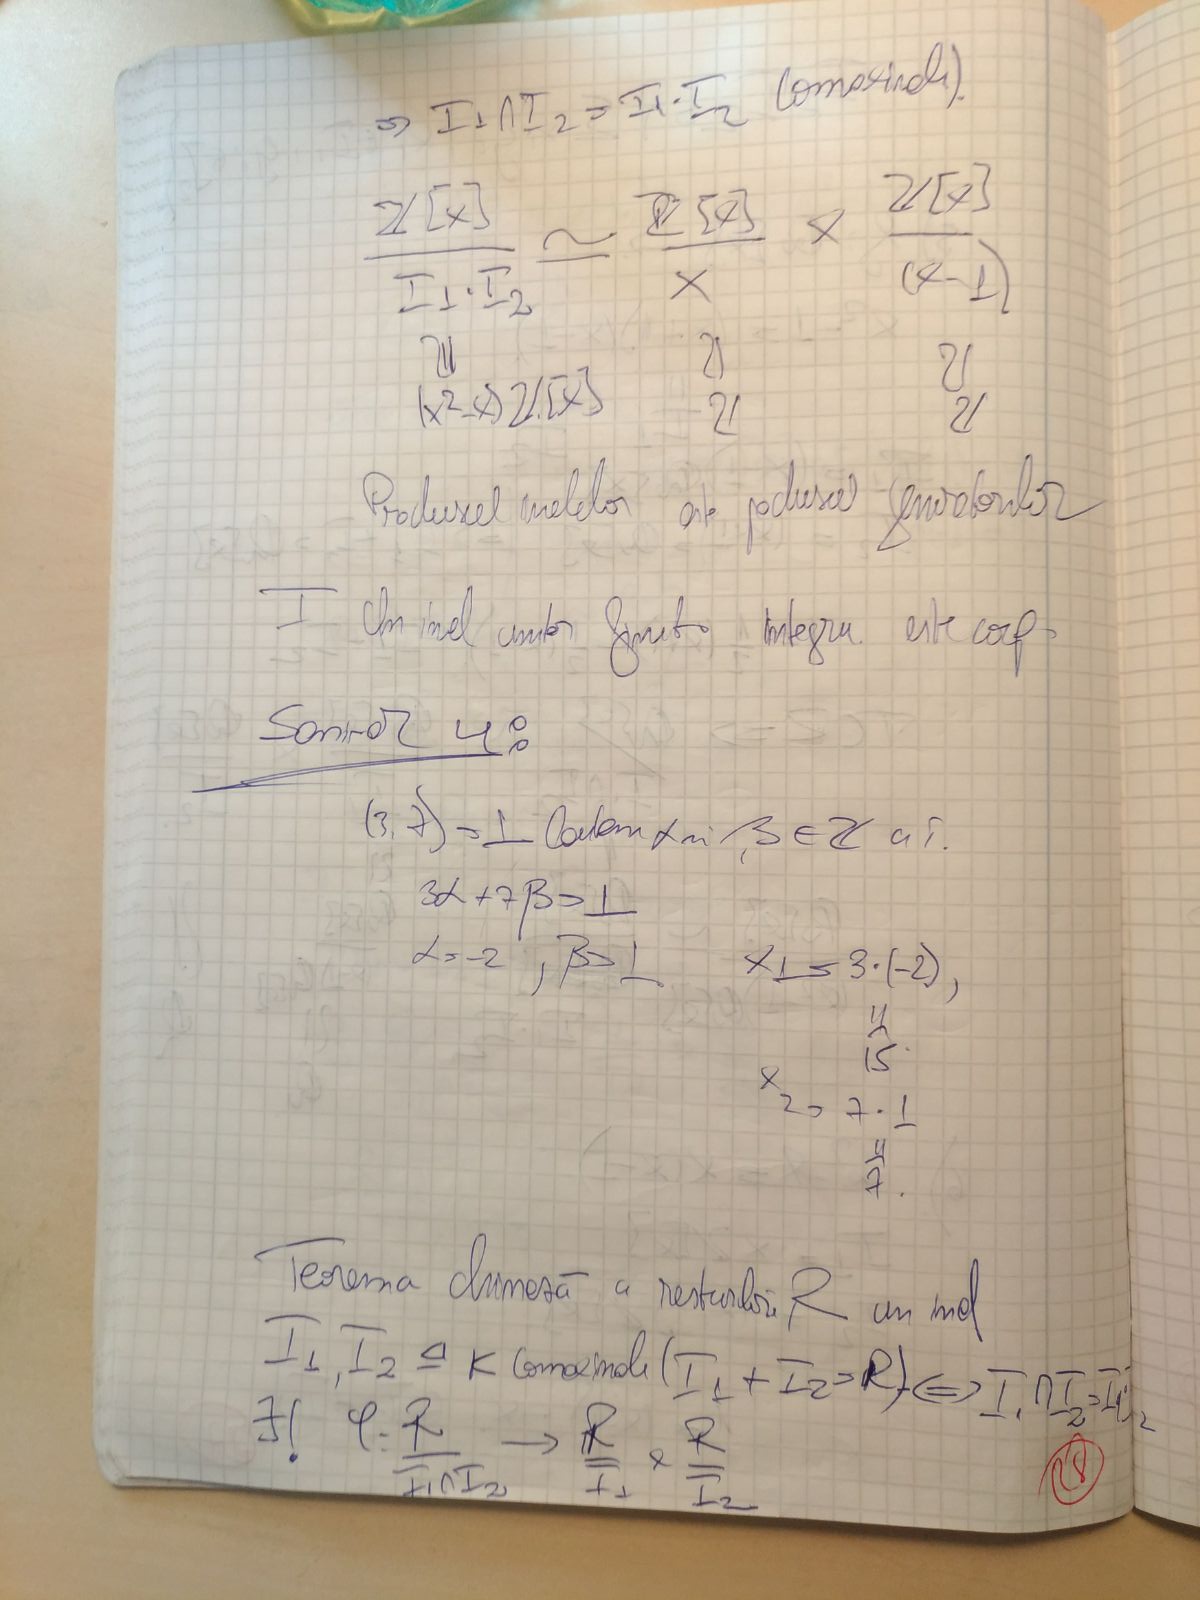 => I1 ∩ I2 = I1·I2 (comaximale).
Z[x] / I1·I2 ≃ Z[x] / x × Z[x] / (x-1)
(x²-x) Z[x] Z Z
Produsul idealelor este produsul generatorilor
T Un inel unitar finit integru este corp.
Seminar 4:
(3,7) = 1 Cautam α si β ∈ Z a.i.
3α + 7β = 1
α = -2, β = 1 x1 = 3·(-2),
15.
x2 = 7·1
7.
Teorema chineză a resturilor: R un inel
I1, I2 ⊴ R comaximale (I1 + I2 = R) <=> I1 ∩ I2 = I1I2
∃! φ: R / I1∩I2 → R / I1 × R / I2
28